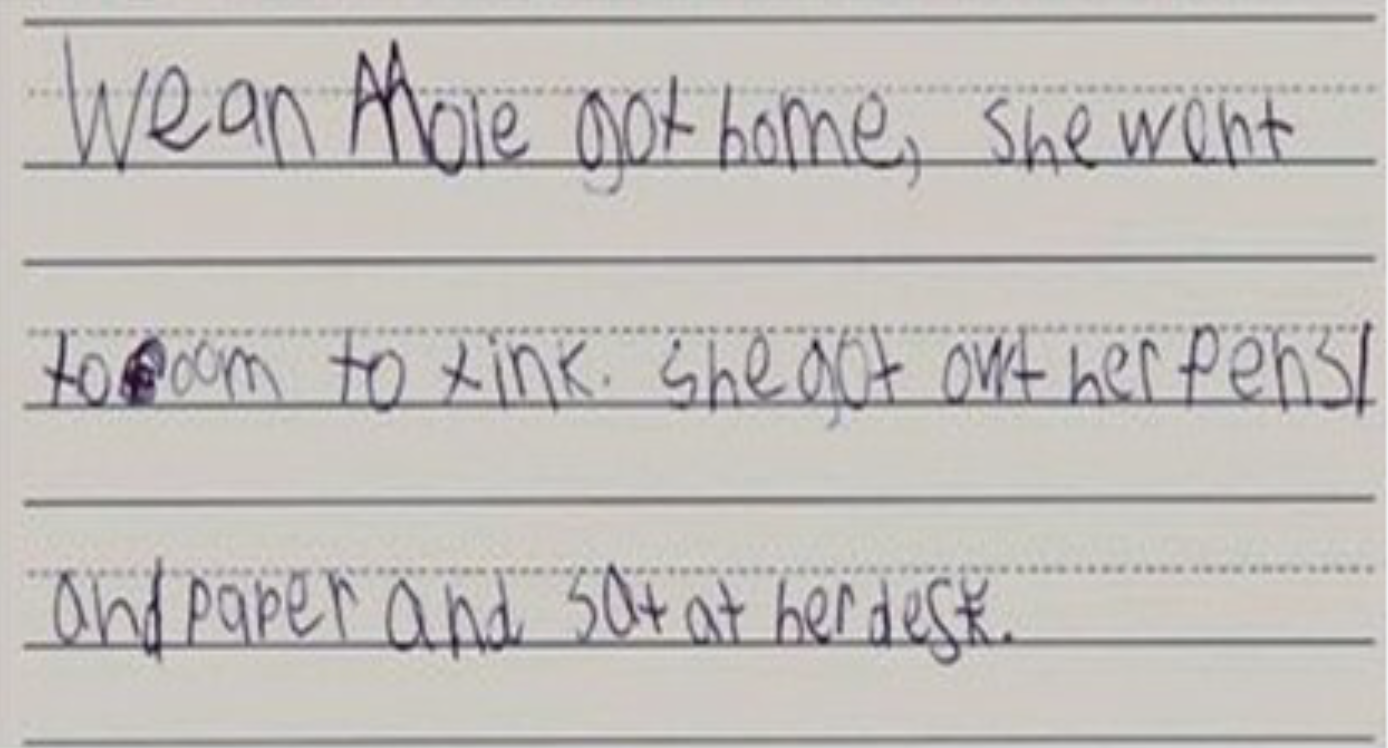 Wean Mole got home, she went
to oom to tink. she got owt her pensl
and paper and sat at her desk.